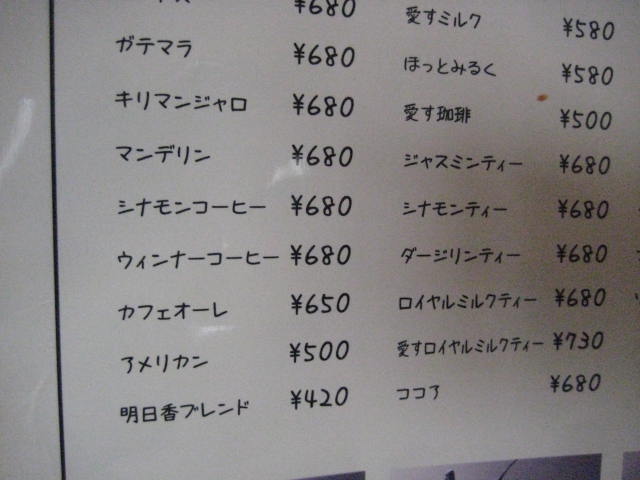 ¥680
ガテマラ ¥680
キリマンジャロ ¥680
マンデリン ¥680
シナモンコーヒー ¥680
ウィンナーコーヒー ¥680
カフェオーレ ¥650
アメリカン ¥500
明日香ブレンド ¥420
愛すミルク ¥580
ほっとみるく ¥580
愛す珈琲 ¥500
ジャスミンティー ¥680
シナモンティー ¥680
ダージリンティー ¥680
ロイヤルミルクティー ¥680
愛すロイヤルミルクティー ¥730
ココア ¥680